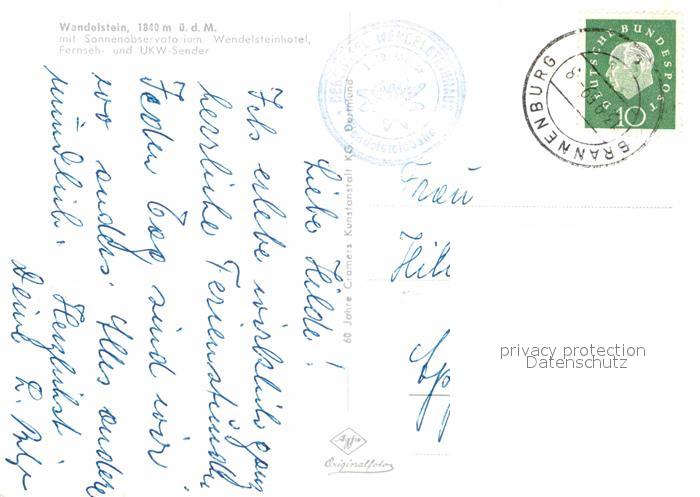 Wendelstein, 1840 m ü. d. M.
mit Sonnenobservatorium Wendelsteinhotel,
Fernseh- und UKW-Sender
Liebe Hilde!
Ich erlebe wirklich ganz
herrliche Ferienstunden
Jeden Tag sind wir
wo anders. Alles andere
mündlich. Herzlichst
Deine L.
60 Jahre Cramers Kunstanstalt KG, Dortmund
WENDELSTEINHAUS
Wendelsteinbahn
BRANNENBURG
DEUTSCHE BUNDESPOST
10
Frau
Hil
privacy protection
Datenschutz
Agfa
Originalfoto